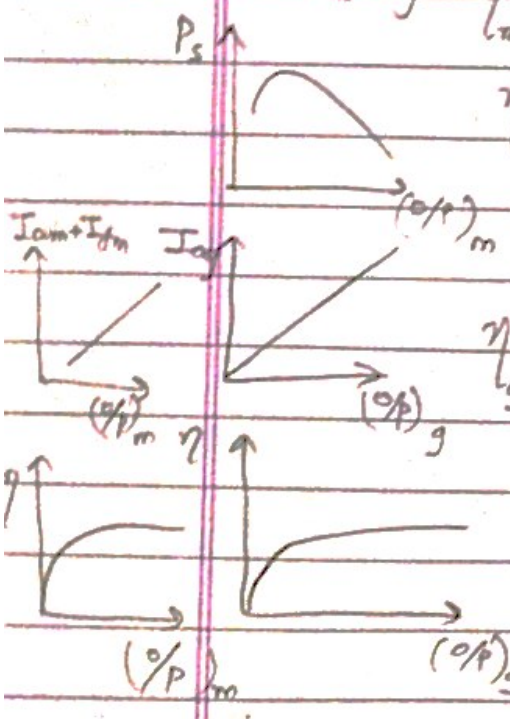 P_s
(o/p)_m
I_am+I_fm I_ag
(o/p)_m (o/p)_g
η η
(o/p)_m (o/p)_g